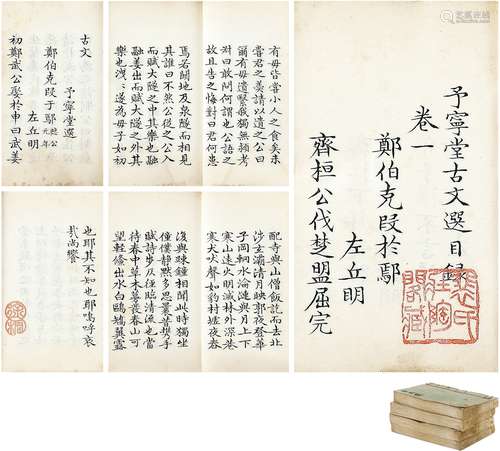 予寧堂古文選目錄
卷一
鄭伯克段於鄢
左丘明
齊桓公伐楚盟屈完
裴氏
壯陶
閣藏
有母皆嘗小人之食矣未
嘗君之羹請以遺之公曰
爾有母遺繄我獨無頴考
叔曰敢問何謂也公語之
故且告之悔對曰君何患
焉若闕地及泉隧而相見
其誰曰不然公從之公入
而賦大隧之中其樂也融
々姜出而賦大隧之外其
樂也洩々遂為母子如初
古文
予寧堂選
鄭伯克段于鄢 隱公元年
左丘明
初鄭武公娶於申曰武姜
配寺與山僧飯訖而去北
涉玄灞清月映郭夜登華
子岡輞水淪漣與月上下
寒山遠火明滅林外深巷
寒犬吠聲如豹村墟夜舂
復與疎鐘相聞此時獨坐
僮僕靜默多思曩昔攜手
賦詩步仄徑臨清流也當
待春中草木蔓發春山可
望輕鯈出水白鷗矯翼露
也耶其不知也耶嗚呼哀
哉尚饗